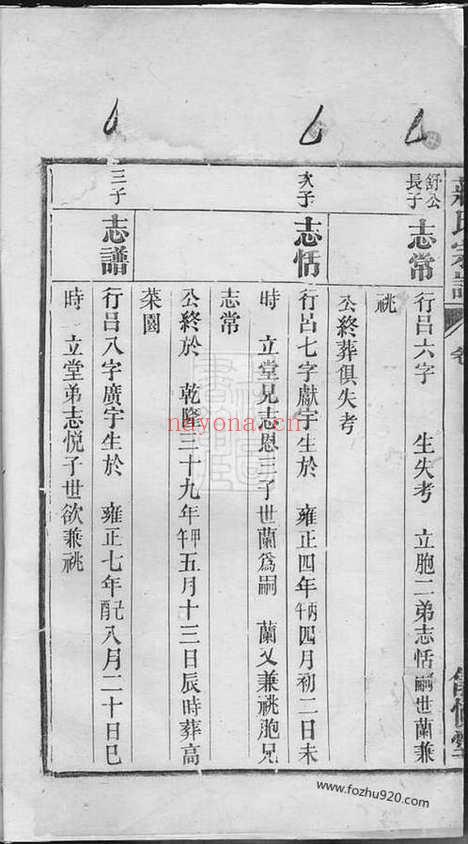 舒公長子
志常
行吕六字 生失考 立胞二弟志恬嗣世蘭兼
祧
公終葬俱失考
次子
志恬
行吕七字獻宇生於 雍正四年丙午四月初二日未
時 立堂兄志恩三子世蘭為嗣 蘭又兼祧胞兄
志常
公終於 乾隆三十九年甲午五月十三日辰時葬高
菜園
三子
志譜
行吕八字廣宇生於 雍正七年己酉八月二十日巳
時 立堂弟志悦子世欲兼祧
nayona.cn
www.fozhu920.com